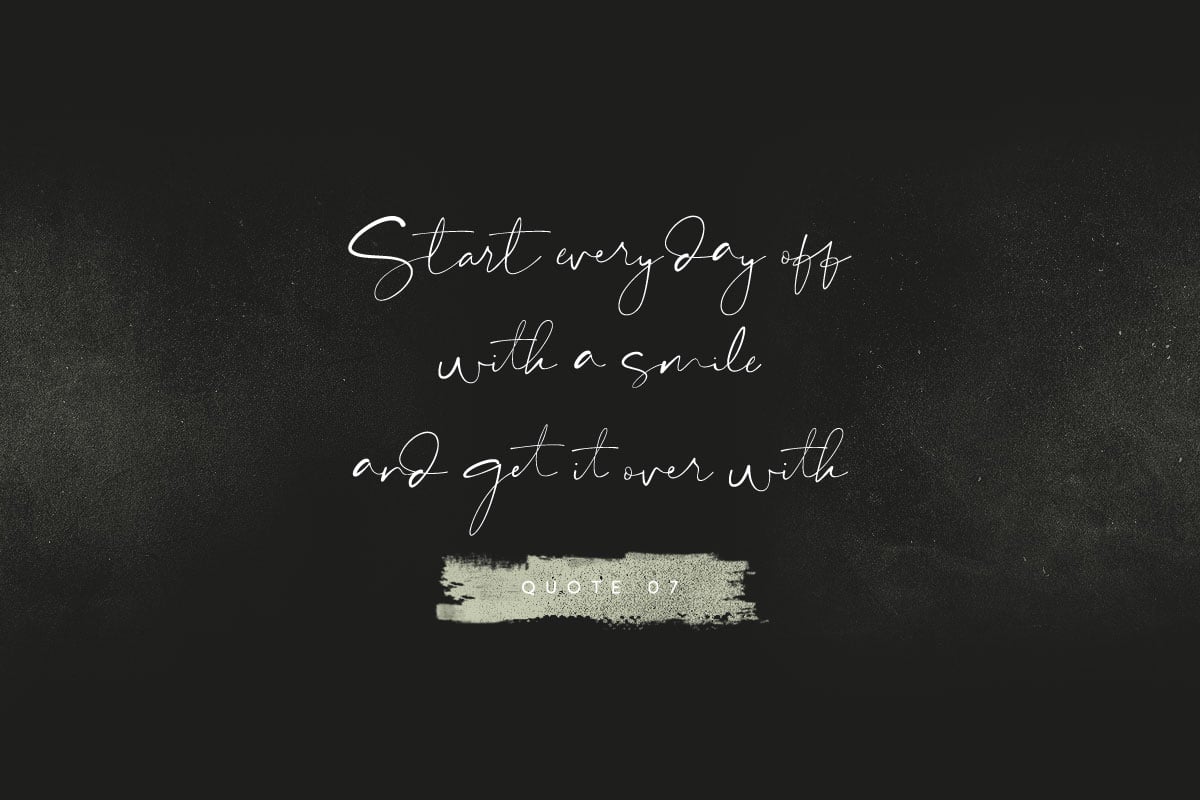 Start every day off
with a smile
and get it over with
QUOTE 07